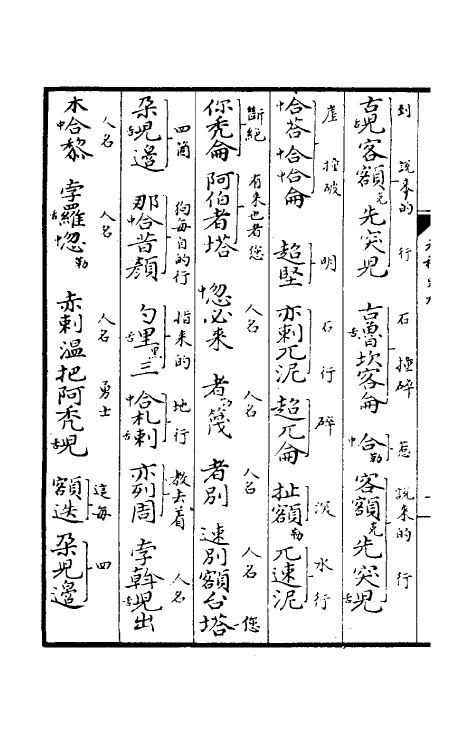 到 說來的 行 石 撞碎 惹 說來的 行
古舌兒客額克先突兒 古舌魯坎客侖 中合勒 客額克先突舌兒
崖 撞破 明 石行 碎 深 水行
中合荅中合中合侖 超堅 亦剌兀泥 超兀侖 扯額勒兀速泥
斷絕 有來也者您 人名 人名 人名 人名 您
你禿侖 阿伯者塔 中忽必來 者篾 者別 速別額台塔
四箇 狗每自的行 指來的 地行 教去着 人名
朵舌兒邊 那中合昔顏 勺舌里黑三 中合札舌剌 亦列周 孛斡舌兒出
人名 人名 人名 勇士 這每 四
木中合黎 孛舌羅忽勒 赤剌溫把阿禿舌兒 額迭 朵舌兒邊